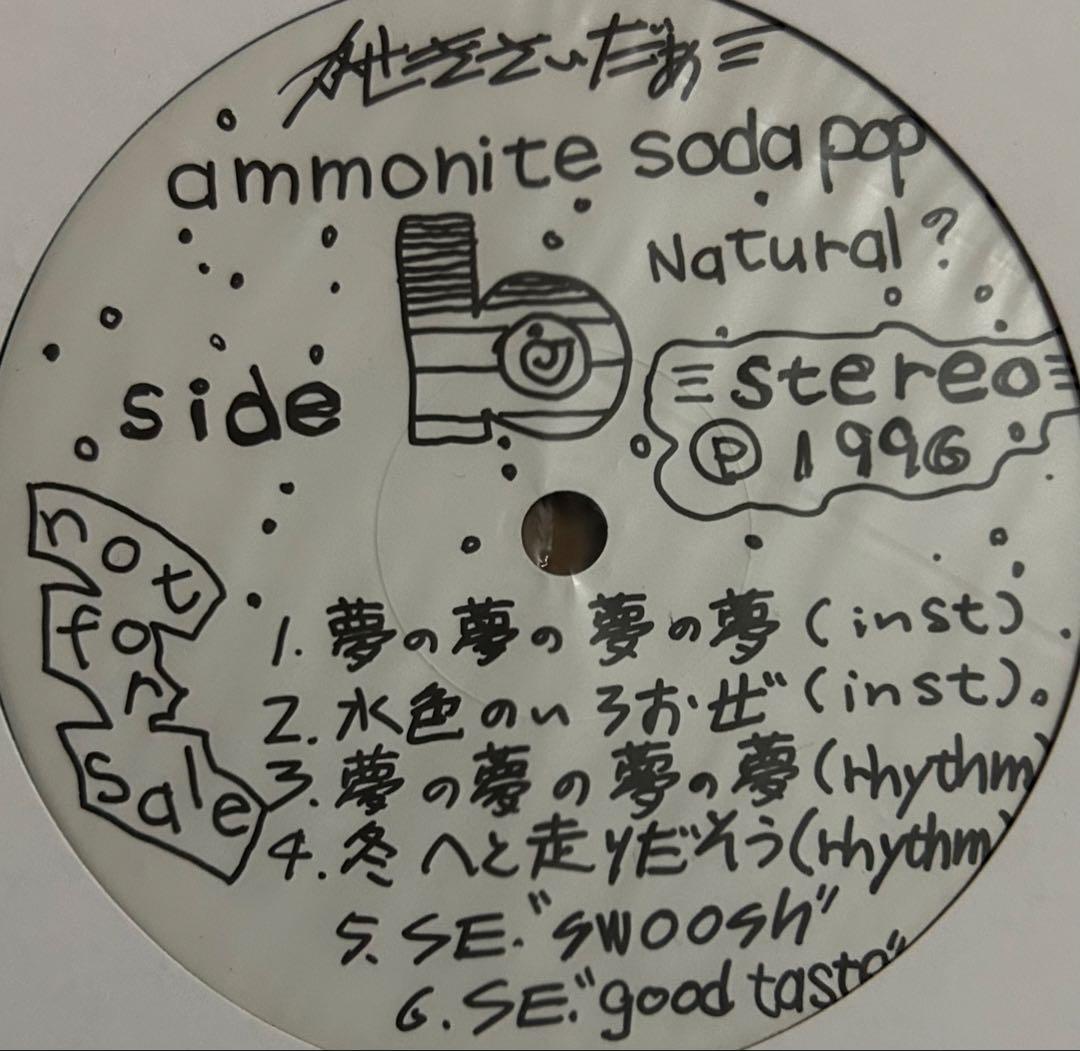 ammonite soda pop
Natural?
side b
stereo
Ⓟ 1996
not
for
sale
1. 夢の夢の夢の夢 (inst).
2. 水色のいろおぜ (inst)。
3. 夢の夢の夢の夢 (rhythm)
4. 冬へと走りだそう (rhythm)
5. SE. "swoosh"
6. SE. "good taste"